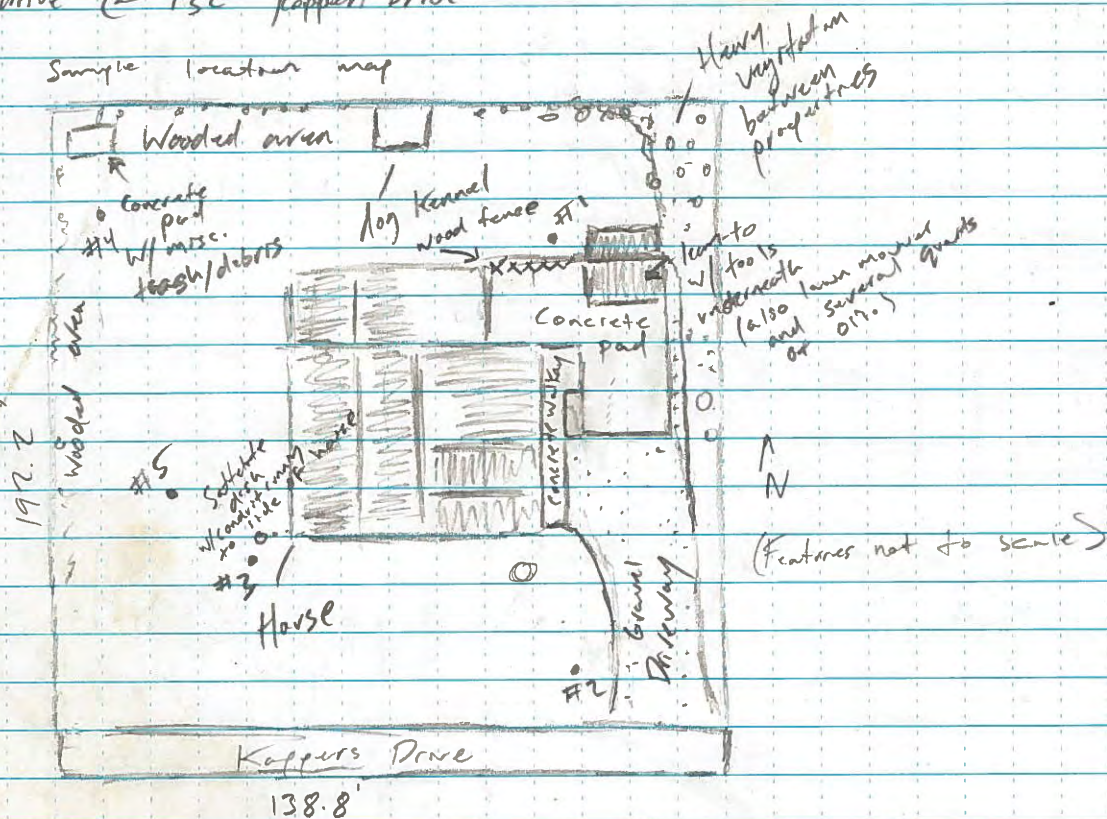 Kappers Drive
Sample location map
Heavy
vegetation
between
properties
Wooded area
Concrete
pad
w/ misc.
trash/debris
#4
dog Kennel
wood fence
#1
lean-to
w/ tools
underneath
(also lawn mower
and several quarts
of oil.)
Concrete
pad
Concrete Walkway
Wooded area
192.2'
#5
Satellite
dish
w/ conduit running
to side of house
#3
House
N
(Features not to scale)
Gravel
Driveway
#2
Kappers Drive
138.8'